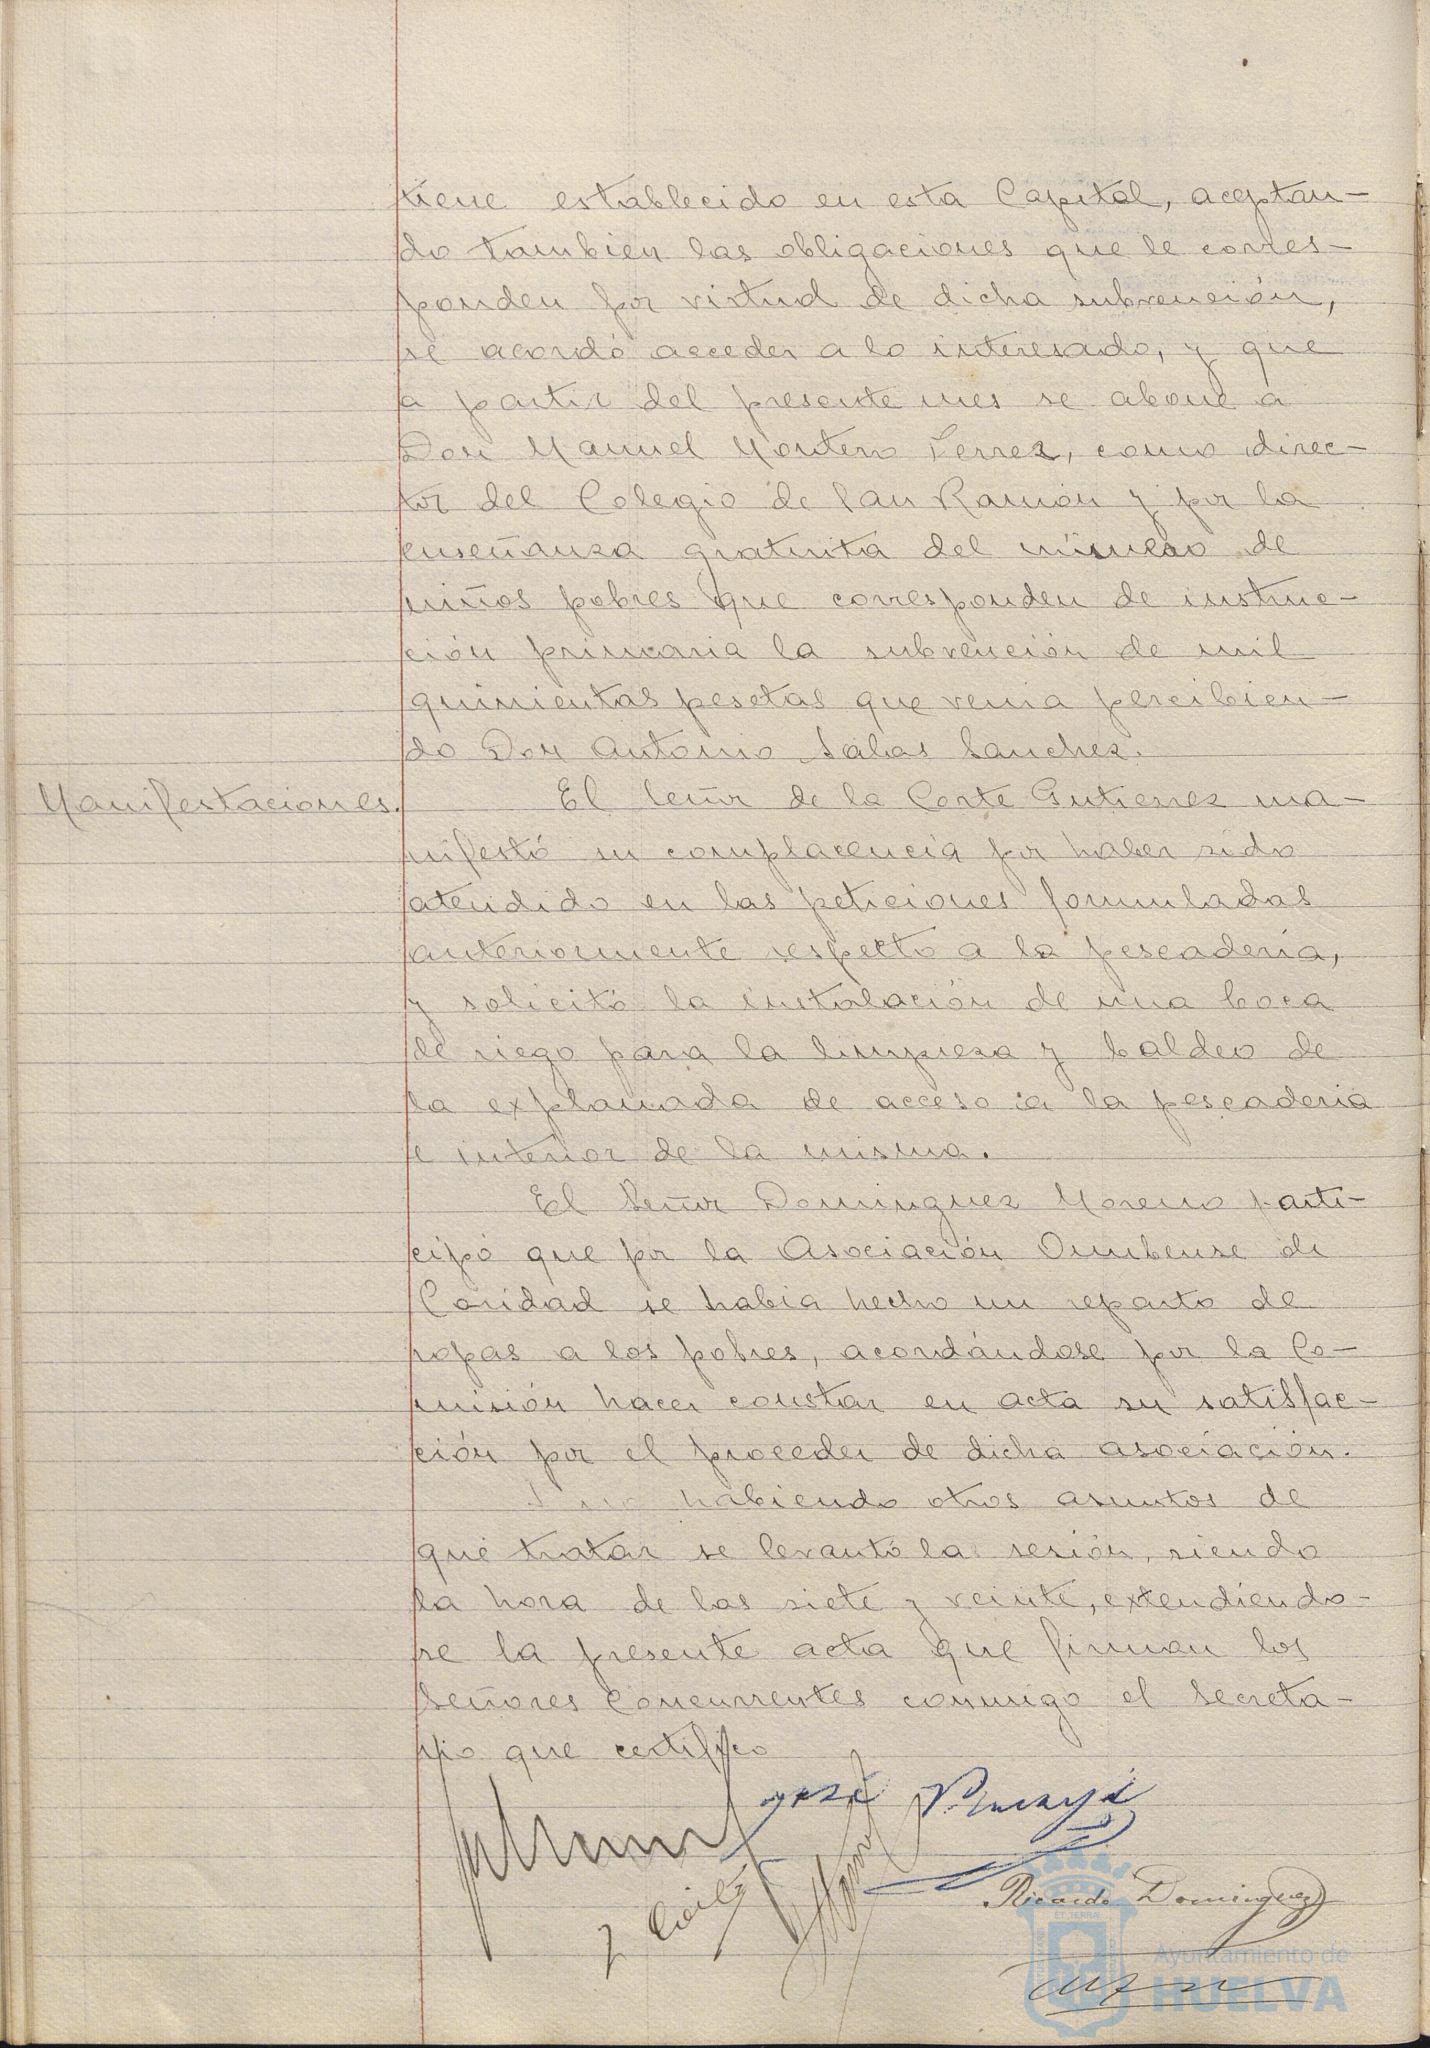 tiene establecido en esta Capital, aceptan-
do tambien las obligaciones que le corres-
ponden por virtud de dicha subvención,
se acordó acceder a lo interesado, y que
a partir del presente mes se abone a
Don Manuel Montero Ferrer, como direc-
tor del Colegio de San Ramón y por la
enseñanza gratuita del número de
niños pobres que corresponden de instruc-
ción primaria la subvención de mil
quinientas pesetas que venia percibien-
do Don Antonio Salas Sanchez.
Manifestaciones.
El Señor de la Corte Gutierrez ma-
nifestó su complacencia por haber sido
atendido en las peticiones formuladas
anteriormente respecto a la pescadería,
y solicitó la instalación de una boca
de riego para la limpieza y baldeo de
la explanada de acceso a la pescaderia
e interior de la misma.
El Señor Dominguez Moreno parti-
cipó que por la Asociación Onubense de
Caridad se habia hecho un reparto de
ropas a los pobres, acordándose por la Co-
misión hacer constar en acta su satisfac-
ción por el proceder de dicha asociación.
Y no habiendo otros asuntos de
que tratar se levantó la sesión, siendo
la hora de las siete y veinte, extendiendo-
se la presente acta que firman los
Señores Concurrentes conmigo el Secreta-
rio que certifico
José
Ricardo Dominguez
Ayuntamiento de
HUELVA